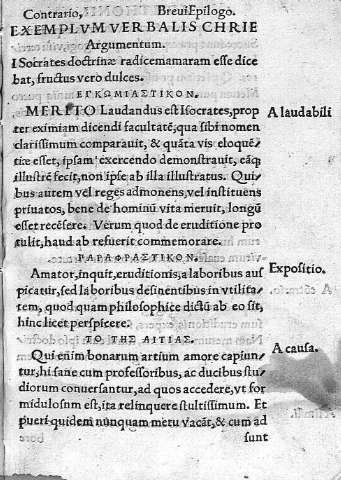 Contrario,        Brevi Epilogo.
EXEMPLVM VERBALIS CHRIE
Argumentum.
ISocrates doctrinæ radicem amaram esse dice
bat, fructus vero dulces.
ΕΓΚΩΜΙΑΣΤΙΚΟΝ.
MERITO Laudandus est Isocrates, prop
ter eximiam dicendi facultatē, qua sibi nomen
clarissimum comparauit, & quāta vis eloquē
tiæ esset, ipsam exercendo demonstrauit, eāq;
illustrē fecit, non ipse ab illa illustratus. Qui
bus autem vel reges admonens, vel instituens
priuatos, bene de hominū vita meruit, longū
esset recēsere. Verum quod de eruditione pro
tulit, haud ab re fuerit commemorare.
A laudabili
ΠΑΡΑΦΡΑΣΤΙΚΟΝ.
Amator, inquit, eruditionis, a laboribus aus
picatur, sed laboribus desinentibus in vtilita
tem, quod quam philosophice dictū ab eo sit,
hinc licet perspicere.
Expositio.
ΤΟ ΤΗΣ ΑΙΤΙΑΣ.
Qui enim bonarum artium amore capiun
tur, hi sane cum professoribus, ac ducibus stu
diorum conuersantur, ad quos accedere, vt for
midulosum est, ita relinquere stultissimum. Et
pueri quidem nunquam metu vacāt, & cum ad
sunt
A causa.